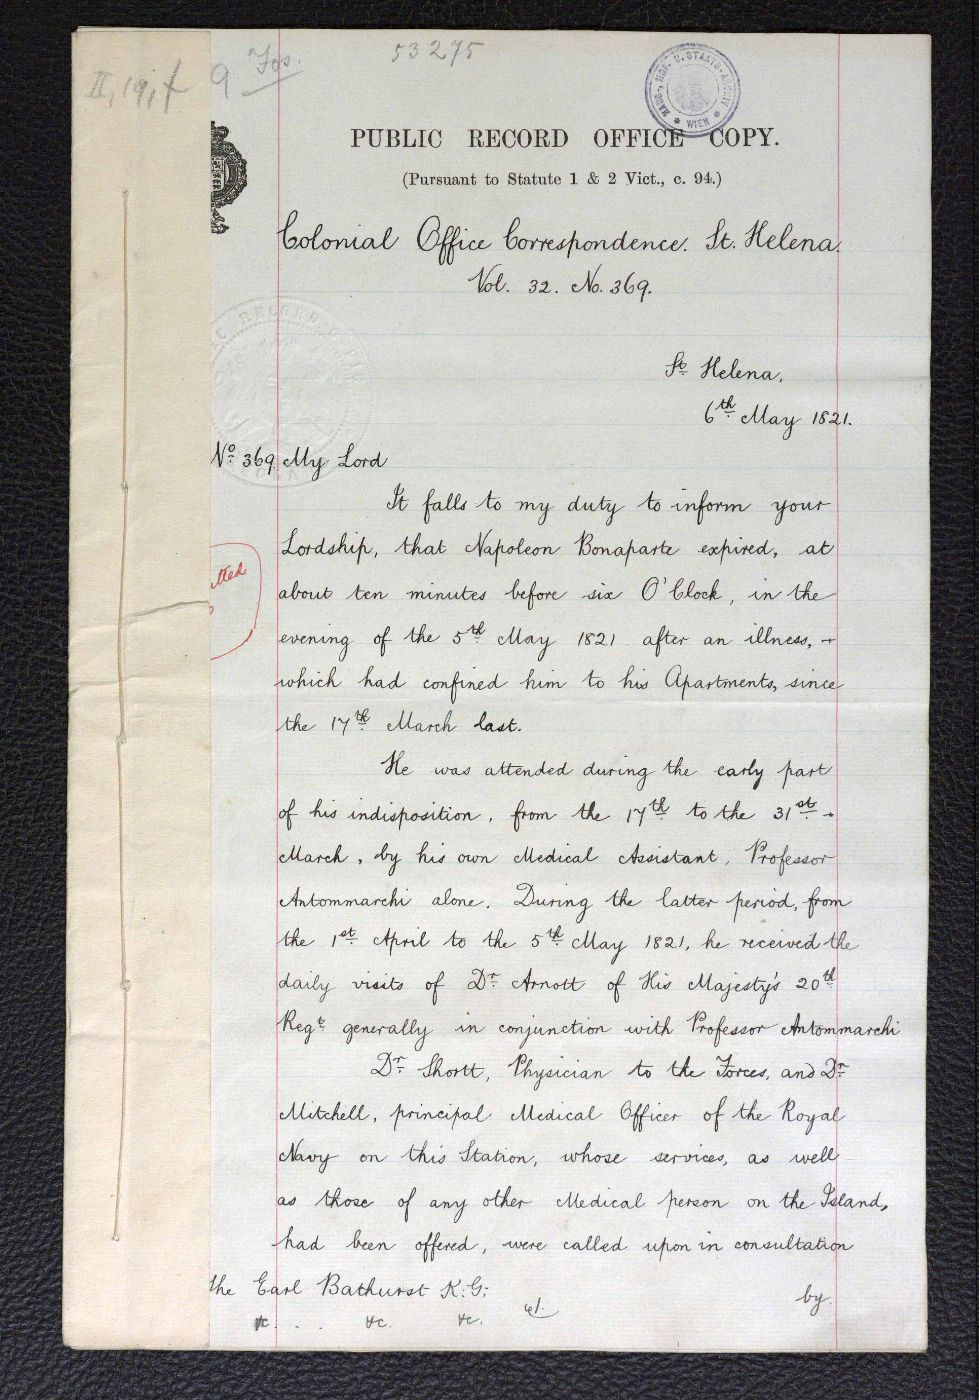 53275
II, 19, f
9 Fos.
HAUS-, HOF- U. STAATS-ARCHIV
* WIEN *
PUBLIC RECORD OFFICE COPY.
(Pursuant to Statute 1 & 2 Vict., c. 94.)
Colonial Office Correspondence. St. Helena.
Vol. 32. No. 369.
St. Helena.
6th May 1821.
No. 369 My Lord
It falls to my duty to inform your
Lordship, that Napoleon Bonaparte expired, at
about ten minutes before six O'Clock, in the
evening of the 5th May 1821 after an illness, -
which had confined him to his Apartments, since
the 17th March last.
He was attended during the early part
of his indisposition, from the 17th to the 31st -
March, by his own Medical Assistant, Professor
Antommarchi alone. During the latter period, from
the 1st April to the 5th May 1821, he received the
daily visits of Dr. Arnott of His Majesty's 20th
Regt. generally in conjunction with Professor Antommarchi
Dr. Shortt, Physician to the Forces, and Dr.
Mitchell, principal Medical Officer of the Royal
Navy on this Station, whose services, as well
as those of any other Medical person on the Island,
had been offered, were called upon in consultation
by
The Earl Bathurst K.G:
&c. . . &c. &c.